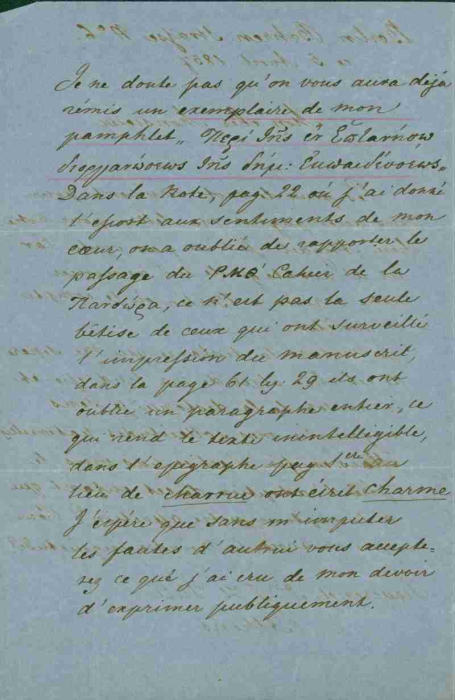 Je ne doute pas qu'on vous aura déja
rémis un exemplaire de mon
pamphlet „ Περί της ἐν Ἑπτανήσῳ
διοργανώσεως της δημ: Ἐκπαιδεύσεως„
Dans la Note, pag 22 où j'ai donné
l'essort aux sentiments de mon
cœur, on a oublié de rapporter le
passage du ΡΚΘ' Cahier de la
Πανδώρα, ce n'est pas la seule
bêtise de ceux qui ont surveillé
l'impression du manuscrit,
dans la page 61 lg 29 ils ont
oublié un paragraphe entier, ce
qui rend le texte inintelligible,
dans l'epigraphe pag 1ere au
lieu de charrue ont écrit charme
J'éspére que sans m'imputer
les fautes d'autrui vous accepte-
rez ce que j'ai cru de mon devoir
d'exprimer publiquement.